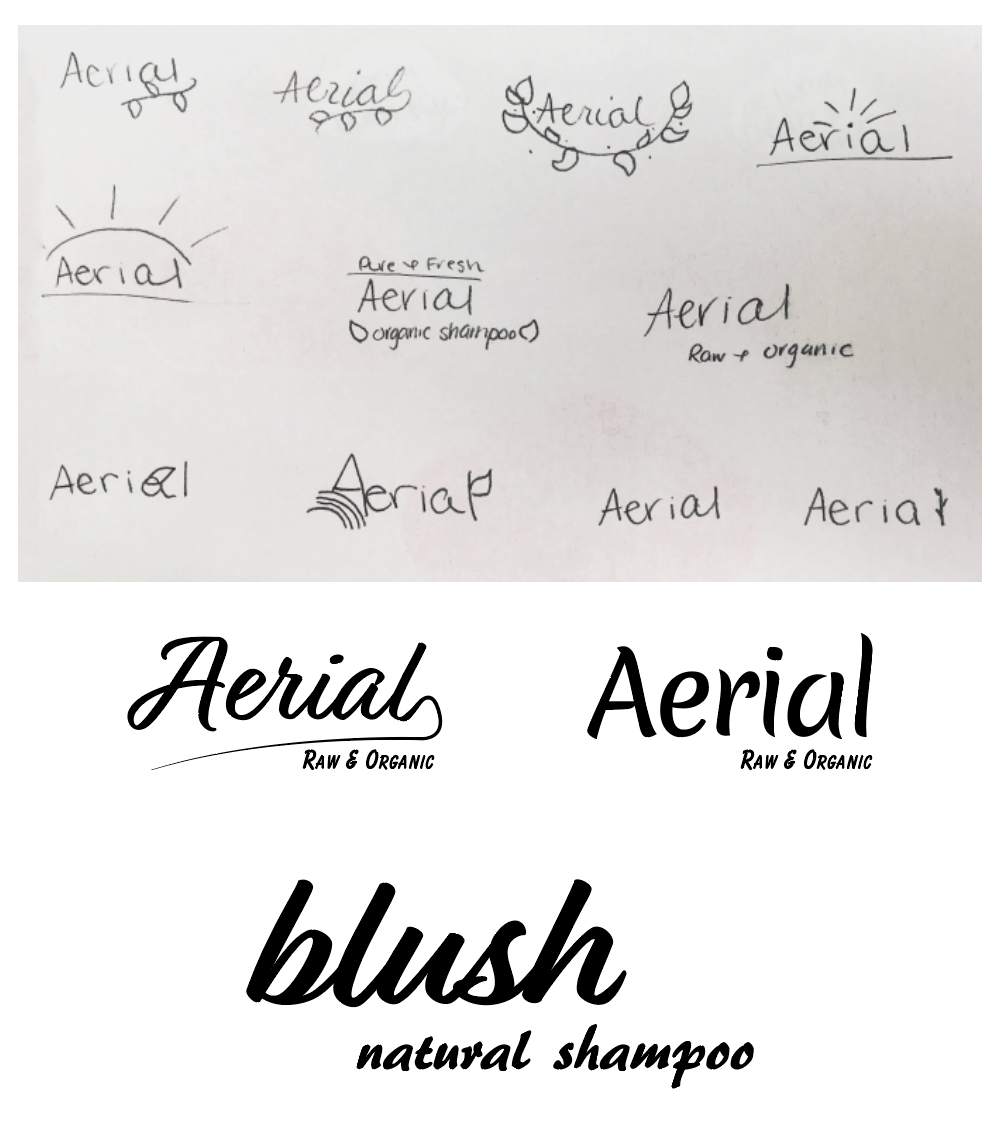 Aerial
Aerial
Aerial
Aerial
Aerial
Pure + Fresh
Aerial
organic shampoo
Aerial
Raw + organic
Aerial
Aerial
Aerial
Aerial
Aerial
RAW & ORGANIC
Aerial
RAW & ORGANIC
blush
natural shampoo